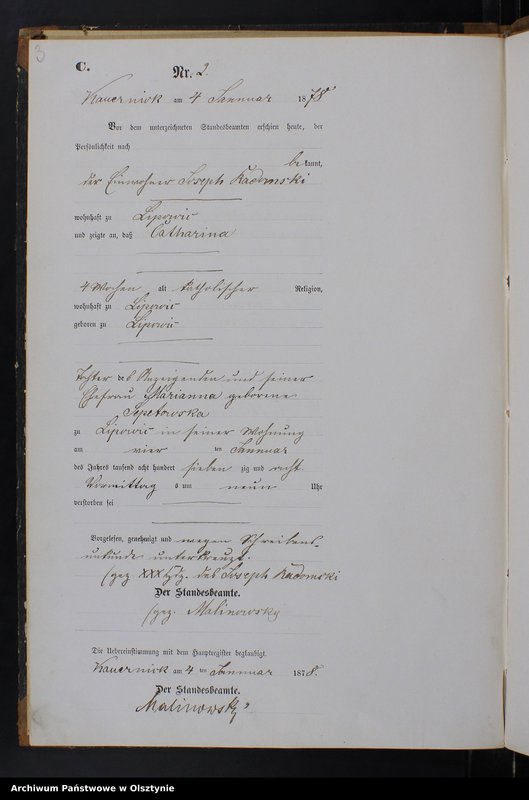 3
C.
Nr. 2.
Kauernick am 4 Januar 1878
Vor dem unterzeichneten Standesbeamten erschien heute, der
Persönlichkeit nach
bekannt,
der Einwohner Joseph Radomski
wohnhaft zu Lipowic
und zeigte an, daß Catharina
4 Wochen alt katholischer Religion,
wohnhaft zu Lipowic
geboren zu Lipowic
Tochter des Anzeigenden und seiner
Ehefrau Marianna geborene
Sepetowska
zu Lipowic in seiner Wohnung
am vier ten Januar
des Jahres tausend acht hundert sieben zig und acht
Vormittag s um neun Uhr
verstorben sei
Vorgelesen, genehmigt und wegen Schreibens-
unkunde unterkreuzt.
(gez XXX Hdz. des Joseph Radomski
Der Standesbeamte.
(gez. Malinowsky
Die Uebereinstimmung mit dem Hauptregister beglaubigt.
Kauernick am 4 ten Januar 1878.
Der Standesbeamte.
Malinowsky
Archiwum Państwowe w Olsztynie